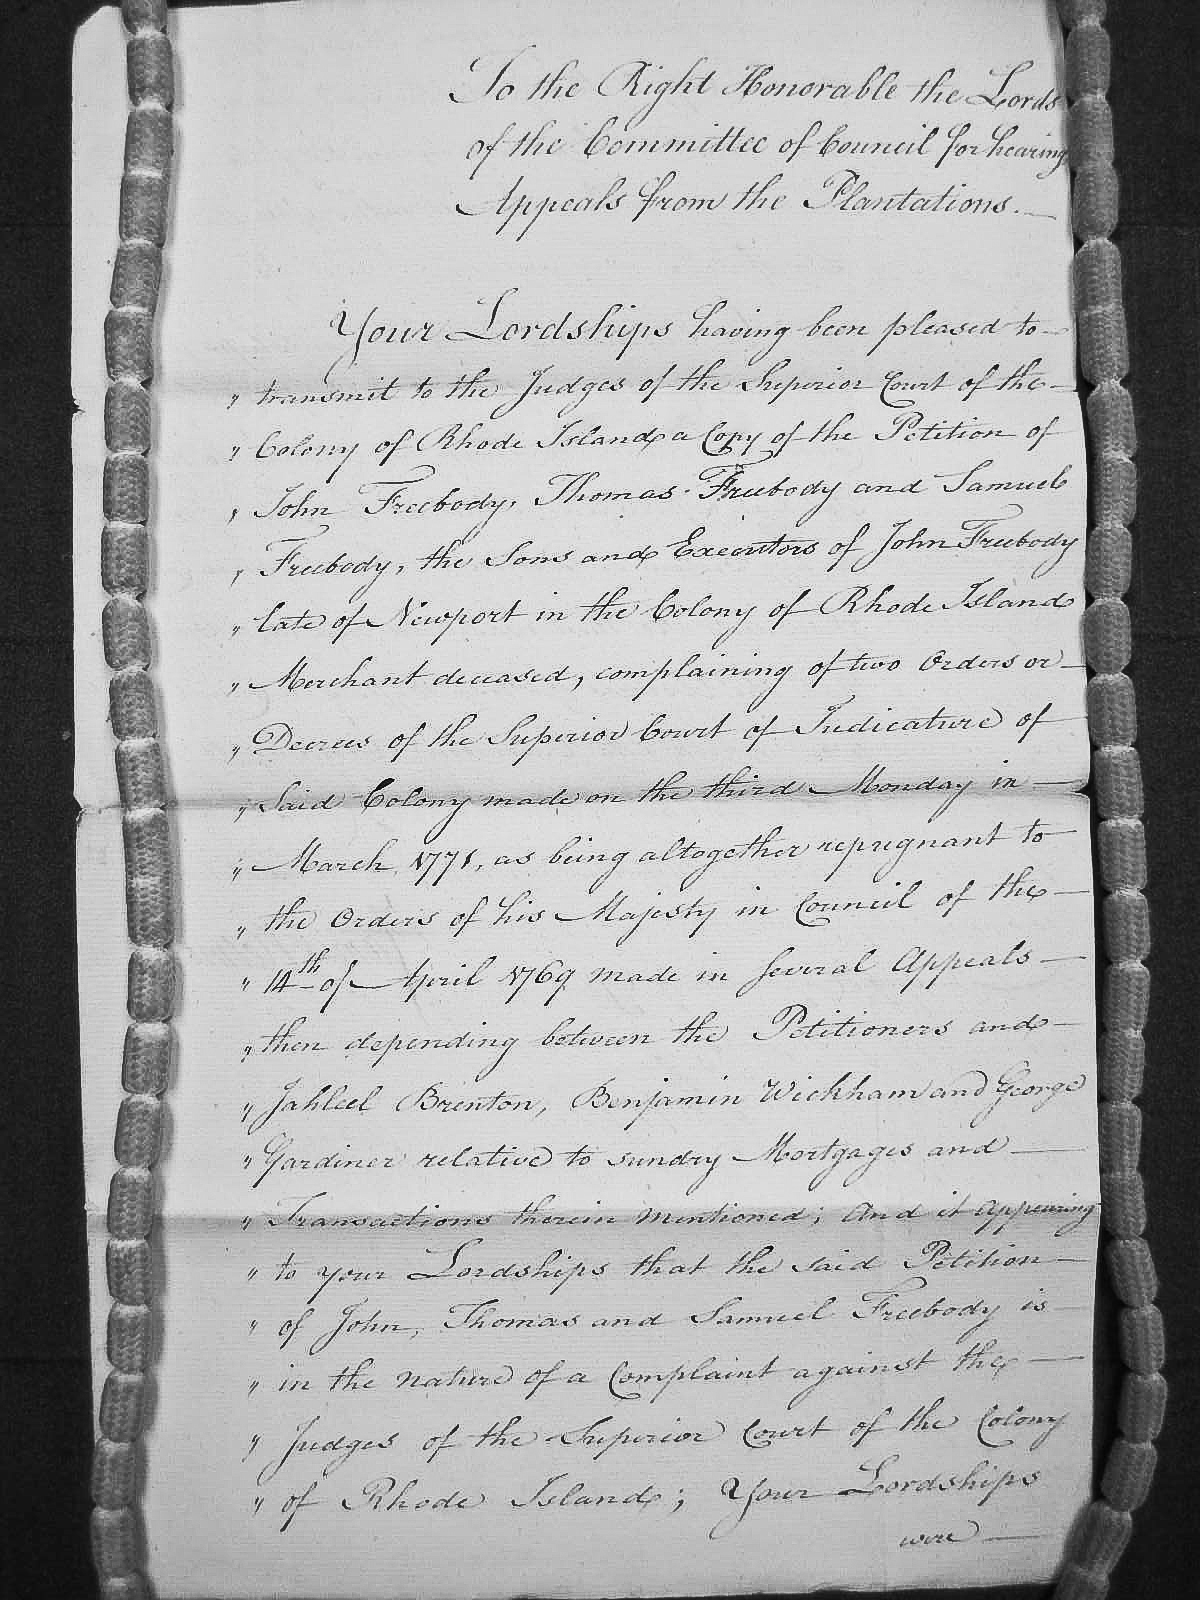 To the Right Honorable the Lords
of the Committee of Council for hearing
Appeals from the Plantations.
Your Lordships having been pleased to
" transmit to the Judges of the Superior Court of the
" Colony of Rhode Island a Copy of the Petition of
" John Freebody, Thomas Freebody and Samuel
" Freebody, the Sons and Executors of John Freebody
" late of Newport in the Colony of Rhode Island
" Merchant deceased, complaining of two Orders or
" Decrees of the Superior Court of Judicature of
" Said Colony made on the third Monday in
" March 1771, as being altogether repugnant to
" the Orders of his Majesty in Council of the
" 14th of April 1769 made in several Appeals
" then depending between the Petitioners and
" Jahleel Brenton, Benjamin Wickham and George
" Gardiner relative to sundry Mortgages and
" Transactions therein mentioned; And it Appearing
" to your Lordships that the said Petition
" of John, Thomas and Samuel Freebody is
" in the nature of a Complaint against the
" Judges of the Superior Court of the Colony
" of Rhode Island; Your Lordships
were